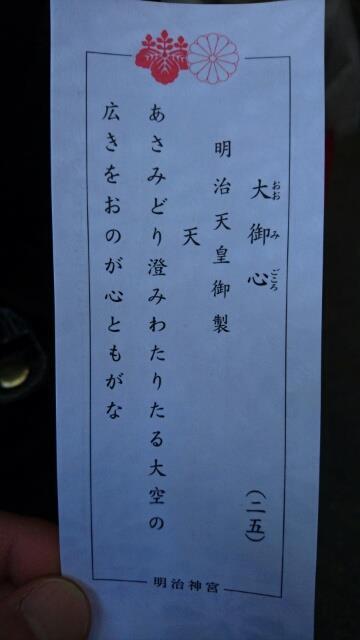 大御心
おおみごころ
(二五)
明治天皇御製
天
あさみどり澄みわたりたる大空の
広きをおのが心ともがな
明治神宮